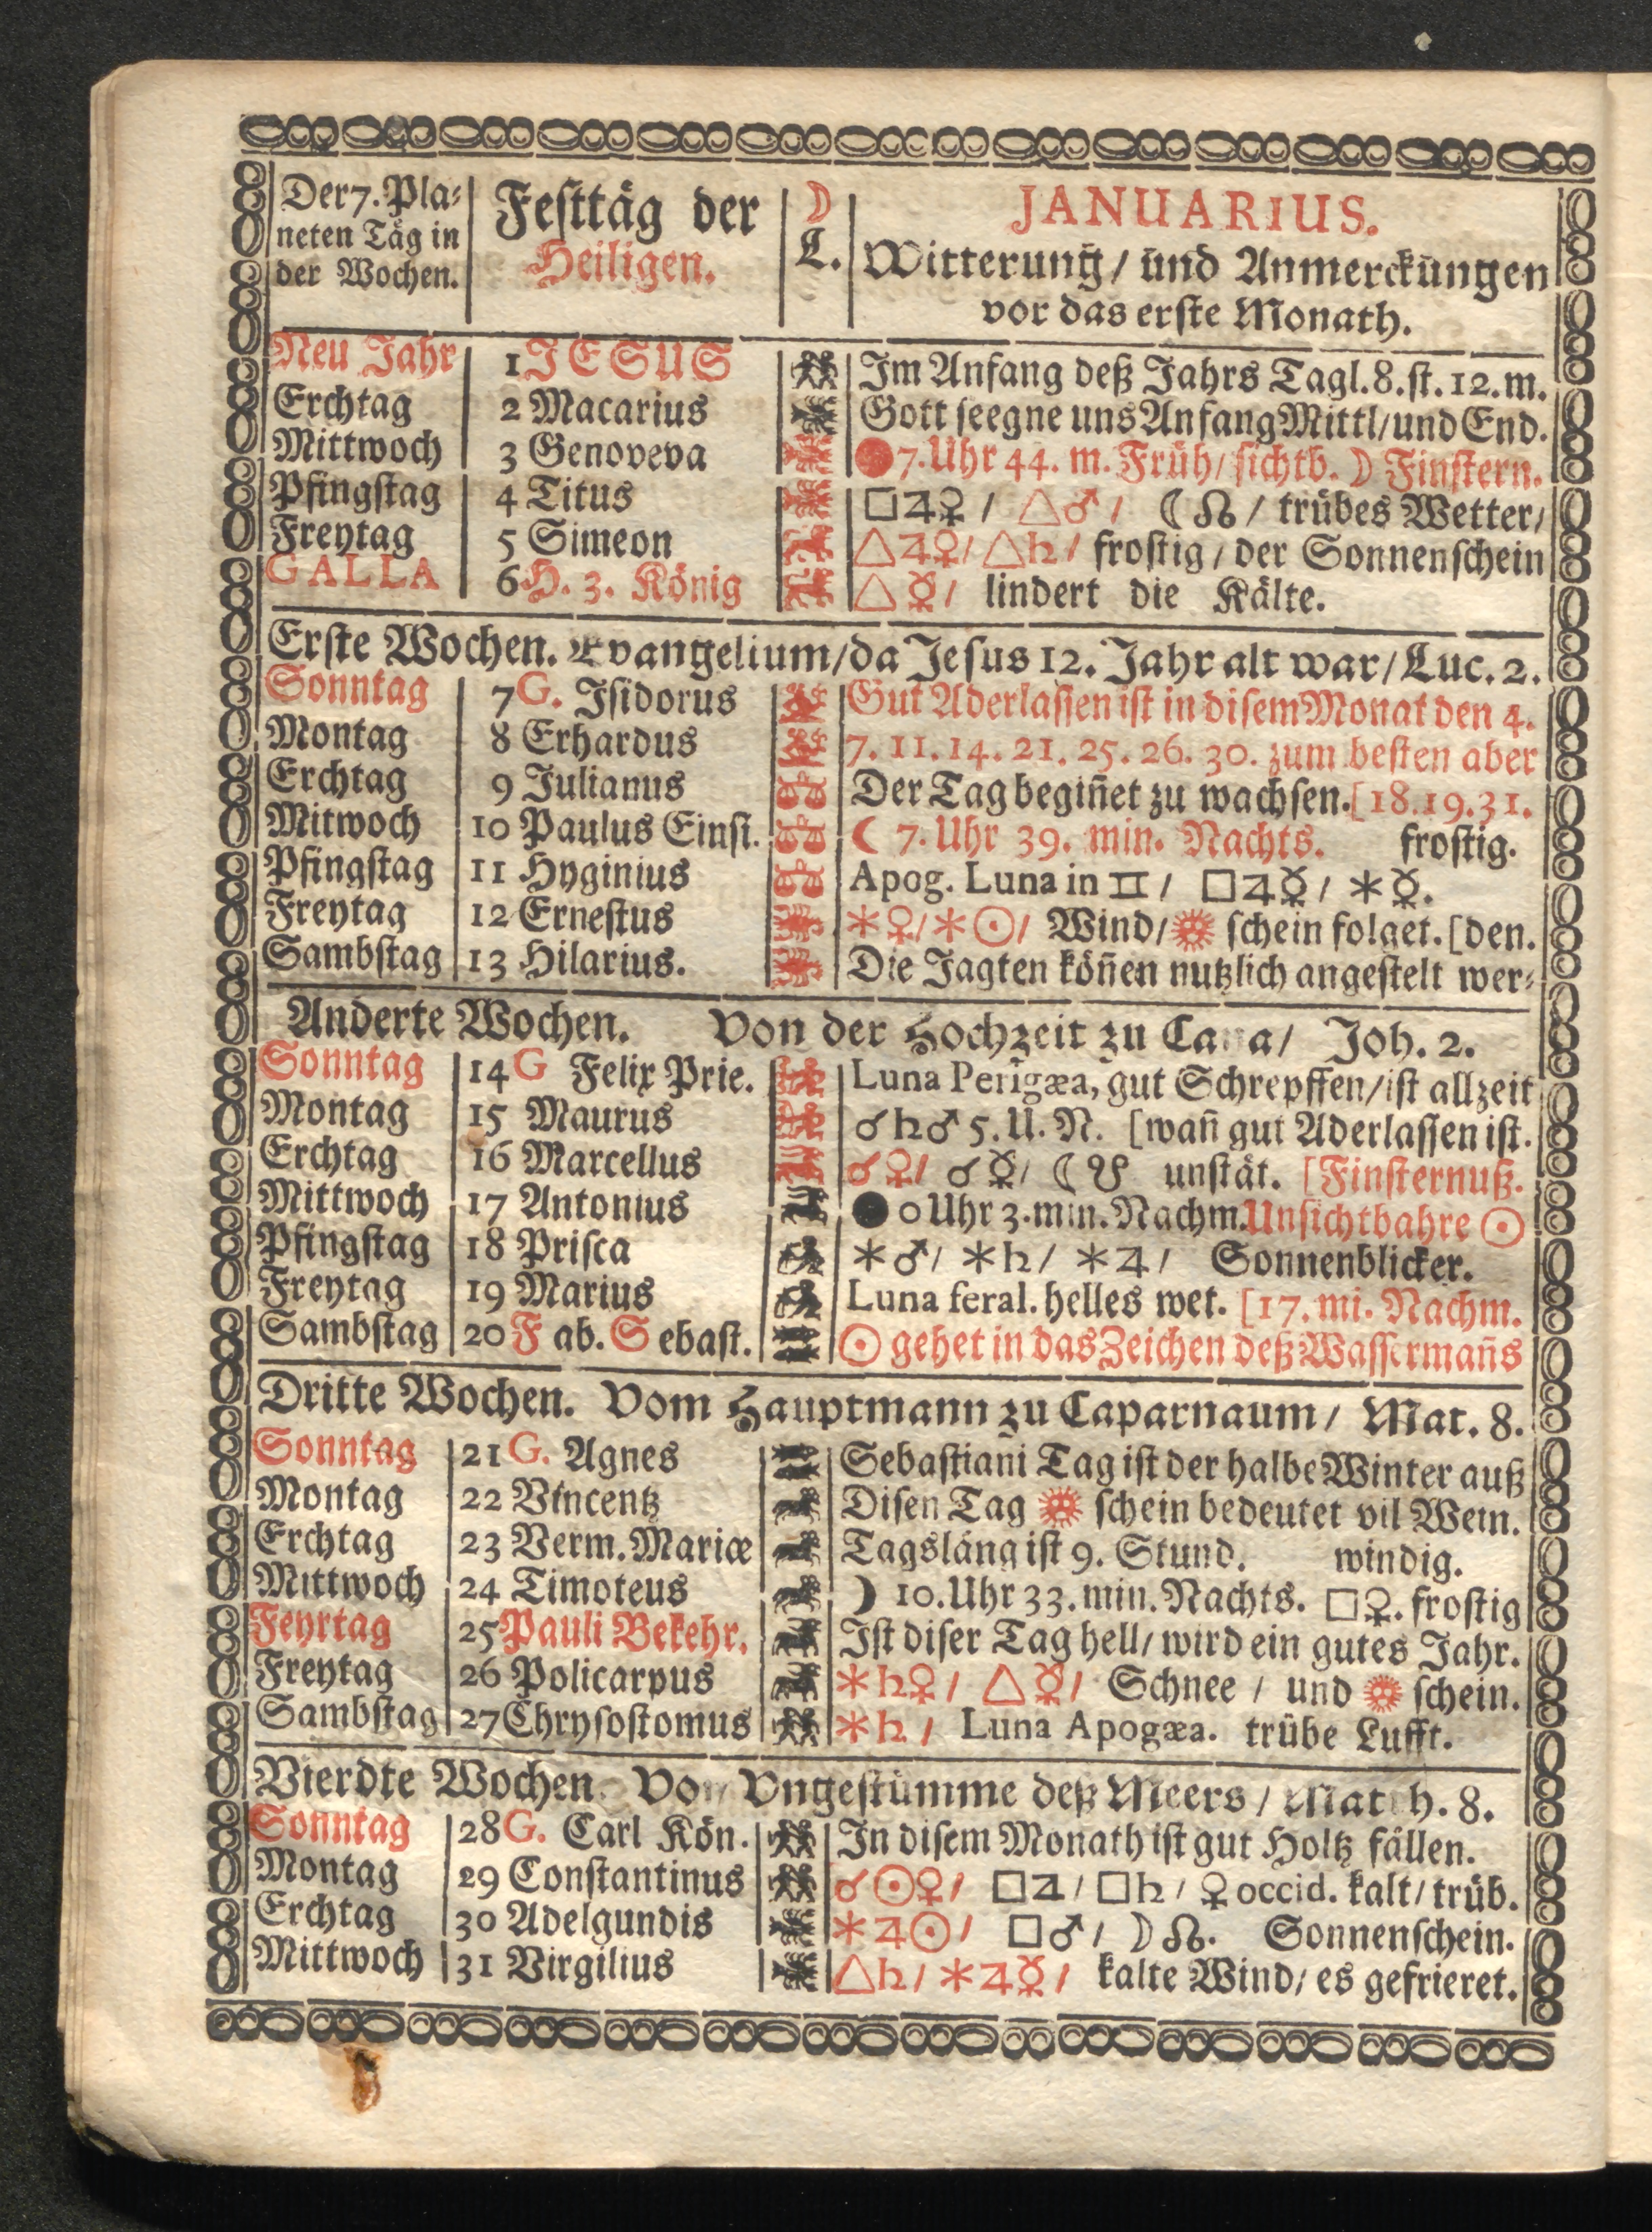 Der 7. Pla⸗ neten Täg in der Wochen.
Festtäg der Heiligen.
☽ L.
JANUARIUS.
Witterung / und Anmerckungen
vor das erste Monath.
Neu Jahr 1 JESUS Im Anfang deß Jahrs Tagl. 8. st. 12. m.
Erchtag 2 Macarius Gott seegne uns Anfang Mittl / und End.
Mittwoch 3 Genoveva ● 7. Uhr 44. m. Früh / sichtb. ☽ Finstern.
Pfingstag 4 Titus □♃♀ / △♂ / ☾☊ / trübes Wetter /
Freytag 5 Simeon △♃♀ / △♄ / frostig / der Sonnenschein
GALLA 6 H. 3. König △☿ / lindert die Kälte.
Erste Wochen. Evangelium / da Jesus 12. Jahr alt war / Luc. 2.
Sonntag 7 G. Isidorus Gut Aderlassen ist in disem Monat den 4.
Montag 8 Erhardus 7. 11. 14. 21. 25. 26. 30. zum besten aber
Erchtag 9 Julianus Der Tag begin̄et zu wachsen. [18. 19. 31.
Mitwoch 10 Paulus Einsi. ☾ 7. Uhr 39. min. Nachts. frostig.
Pfingstag 11 Hyginius Apog. Luna in ♊ / □♃☿ / ⚹☿.
Freytag 12 Ernestus ⚹♀ / ⚹☉ / Wind / ☀ schein folget. [den.
Sambstag 13 Hilarius. Die Jagten kön̄en nutzlich angestelt wer⸗
Anderte Wochen. Von der Hochzeit zu Cana / Joh. 2.
Sonntag 14 G Felix Prie. Luna Perigæa, gut Schrepffen / ist allzeit
Montag 15 Maurus ☌♄♂ 5. U. N. [wan̄ gut Aderlassen ist.
Erchtag 16 Marcellus ☌♀ / ☌☿ / ☾☋ unstät. [Finsternuß.
Mittwoch 17 Antonius ● 0 Uhr 3. min. Nachm. Unsichtbahre ☉
Pfingstag 18 Prisca ⚹♂ / ⚹♄ / ⚹♃ / Sonnenblicker.
Freytag 19 Marius Luna feral. helles wet. [17. mi. Nachm.
Sambstag 20 Fab. Sebast. ☉ gehet in das Zeichen deß Wasserman̄s
Dritte Wochen. Vom Hauptmann zu Caparnaum / Mat. 8.
Sonntag 21 G. Agnes Sebastiani Tag ist der halbe Winter auß
Montag 22 Vincentz Disen Tag ☀ schein bedeutet vil Wein.
Erchtag 23 Verm. Mariæ Tagsläng ist 9. Stund. windig.
Mittwoch 24 Timoteus ☽ 10. Uhr 33. min. Nachts. □♀. frostig
Feyrtag 25 Pauli Bekehr. Ist diser Tag hell / wird ein gutes Jahr.
Freytag 26 Policarpus ⚹♄♀ / △☿ / Schnee / und ☀ schein.
Sambstag 27 Chrysostomus ⚹♄ / Luna Apogæa. trübe Lufft.
Vierdte Wochen. Von Ungestümme deß Meers / Matth. 8.
Sonntag 28 G. Carl Kön. In disem Monath ist gut Holtz fällen.
Montag 29 Constantinus ☌☉♀ / □♃ / □♄ / ♀ occid. kalt / trüb.
Erchtag 30 Adelgundis ⚹♃☉ / □♂ / ☽☊. Sonnenschein.
Mittwoch 31 Virgilius △♄ / ⚹♃☿ / kalte Wind / es gefrieret.